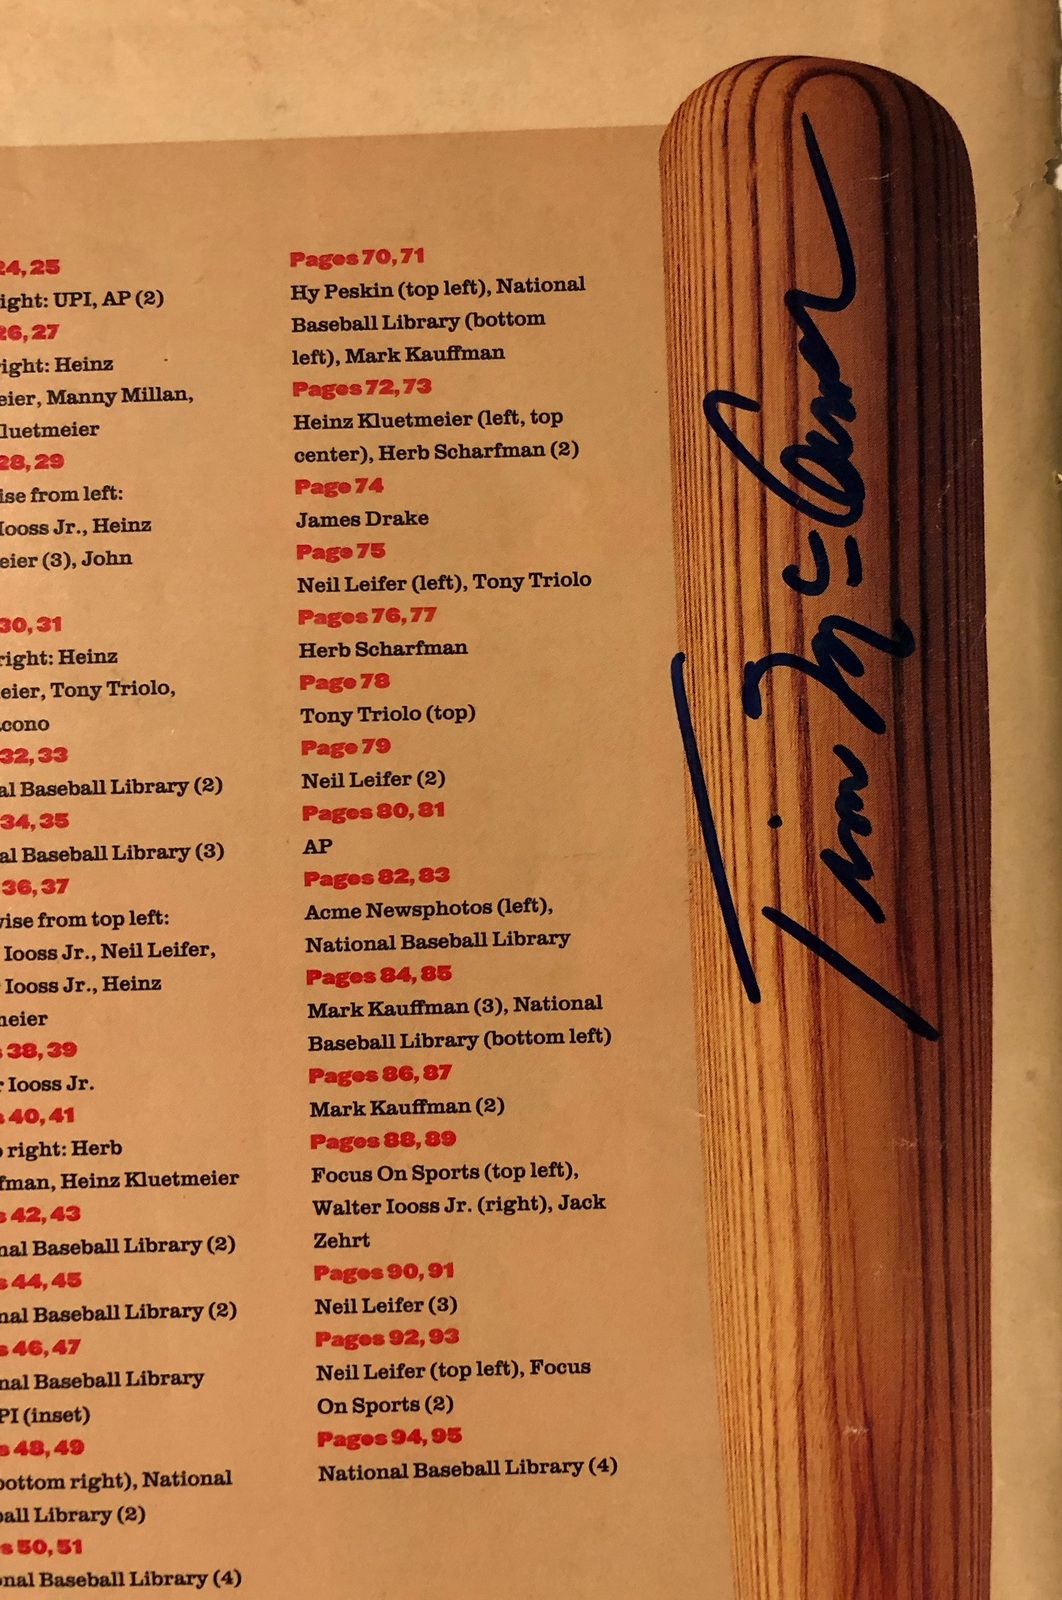 24, 25
ight: UPI, AP (2)
26, 27
right: Heinz
eier, Manny Millan,
luetmeier
28, 29
ise from left:
Iooss Jr., Heinz
eier (3), John
30, 31
right: Heinz
eier, Tony Triolo,
cono
32, 33
al Baseball Library (2)
34, 35
al Baseball Library (3)
36, 37
wise from top left:
Iooss Jr., Neil Leifer,
Iooss Jr., Heinz
meier
s 38, 39
r Iooss Jr.
s 40, 41
o right: Herb
fman, Heinz Kluetmeier
s 42, 43
nal Baseball Library (2)
s 44, 45
nal Baseball Library (2)
s 46, 47
nal Baseball Library
PI (inset)
s 48, 49
bottom right), National
ball Library (2)
s 50, 51
onal Baseball Library (4)
Pages 70, 71
Hy Peskin (top left), National
Baseball Library (bottom
left), Mark Kauffman
Pages 72, 73
Heinz Kluetmeier (left, top
center), Herb Scharfman (2)
Page 74
James Drake
Page 75
Neil Leifer (left), Tony Triolo
Pages 76, 77
Herb Scharfman
Page 78
Tony Triolo (top)
Page 79
Neil Leifer (2)
Pages 80, 81
AP
Pages 82, 83
Acme Newsphotos (left),
National Baseball Library
Pages 84, 85
Mark Kauffman (3), National
Baseball Library (bottom left)
Pages 86, 87
Mark Kauffman (2)
Pages 88, 89
Focus On Sports (top left),
Walter Iooss Jr. (right), Jack
Zehrt
Pages 90, 91
Neil Leifer (3)
Pages 92, 93
Neil Leifer (top left), Focus
On Sports (2)
Pages 94, 95
National Baseball Library (4)
Tim McCarver